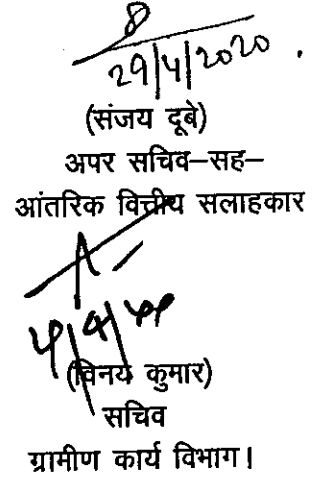 29/4/2020.
(संजय दूबे)
अपर सचिव–सह–
आंतरिक वित्तीय सलाहकार
(विनय कुमार)
सचिव
ग्रामीण कार्य विभाग।